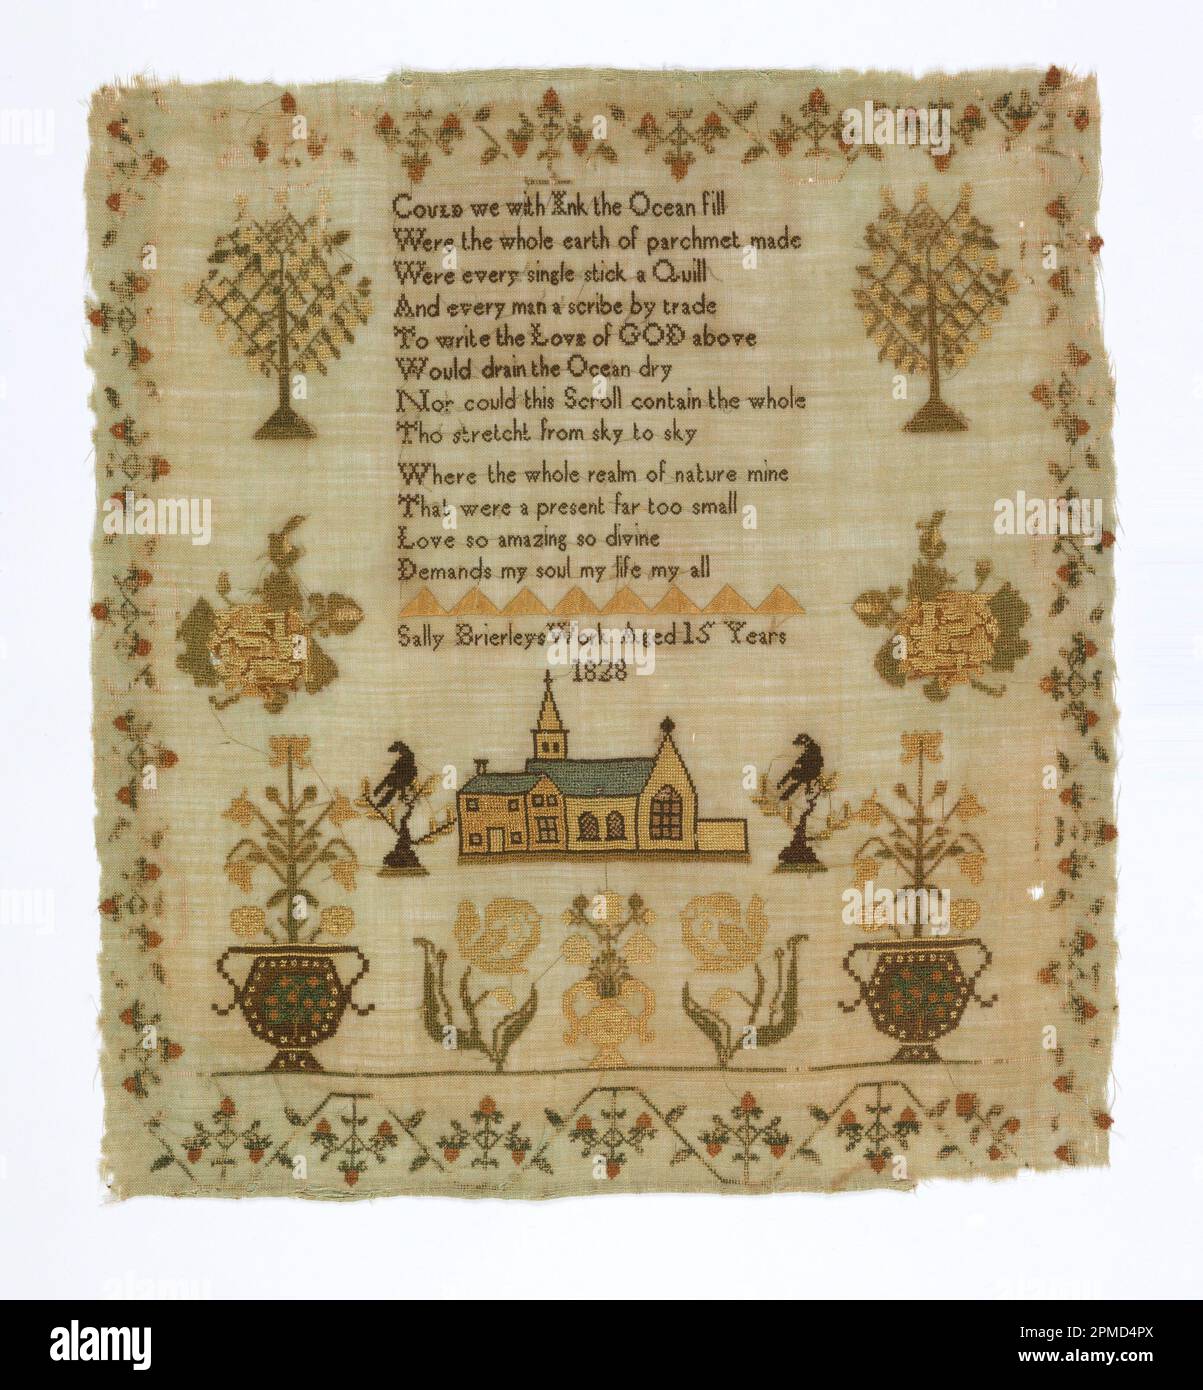 Could we with Ink the Ocean fill
Were the whole earth of parchmet made
Were every single stick a Quill
And every man a scribe by trade
To write the Love of GOD above
Would drain the Ocean dry
Nor could this Scroll contain the whole
Tho stretcht from sky to sky
Where the whole realm of nature mine
That were a present far too small
Love so amazing so divine
Demands my soul my life my all
Sally Brierleys Work Aged 15 Years
1828
alamy
alamy
Image ID: 2PMD4PX
www.alamy.com